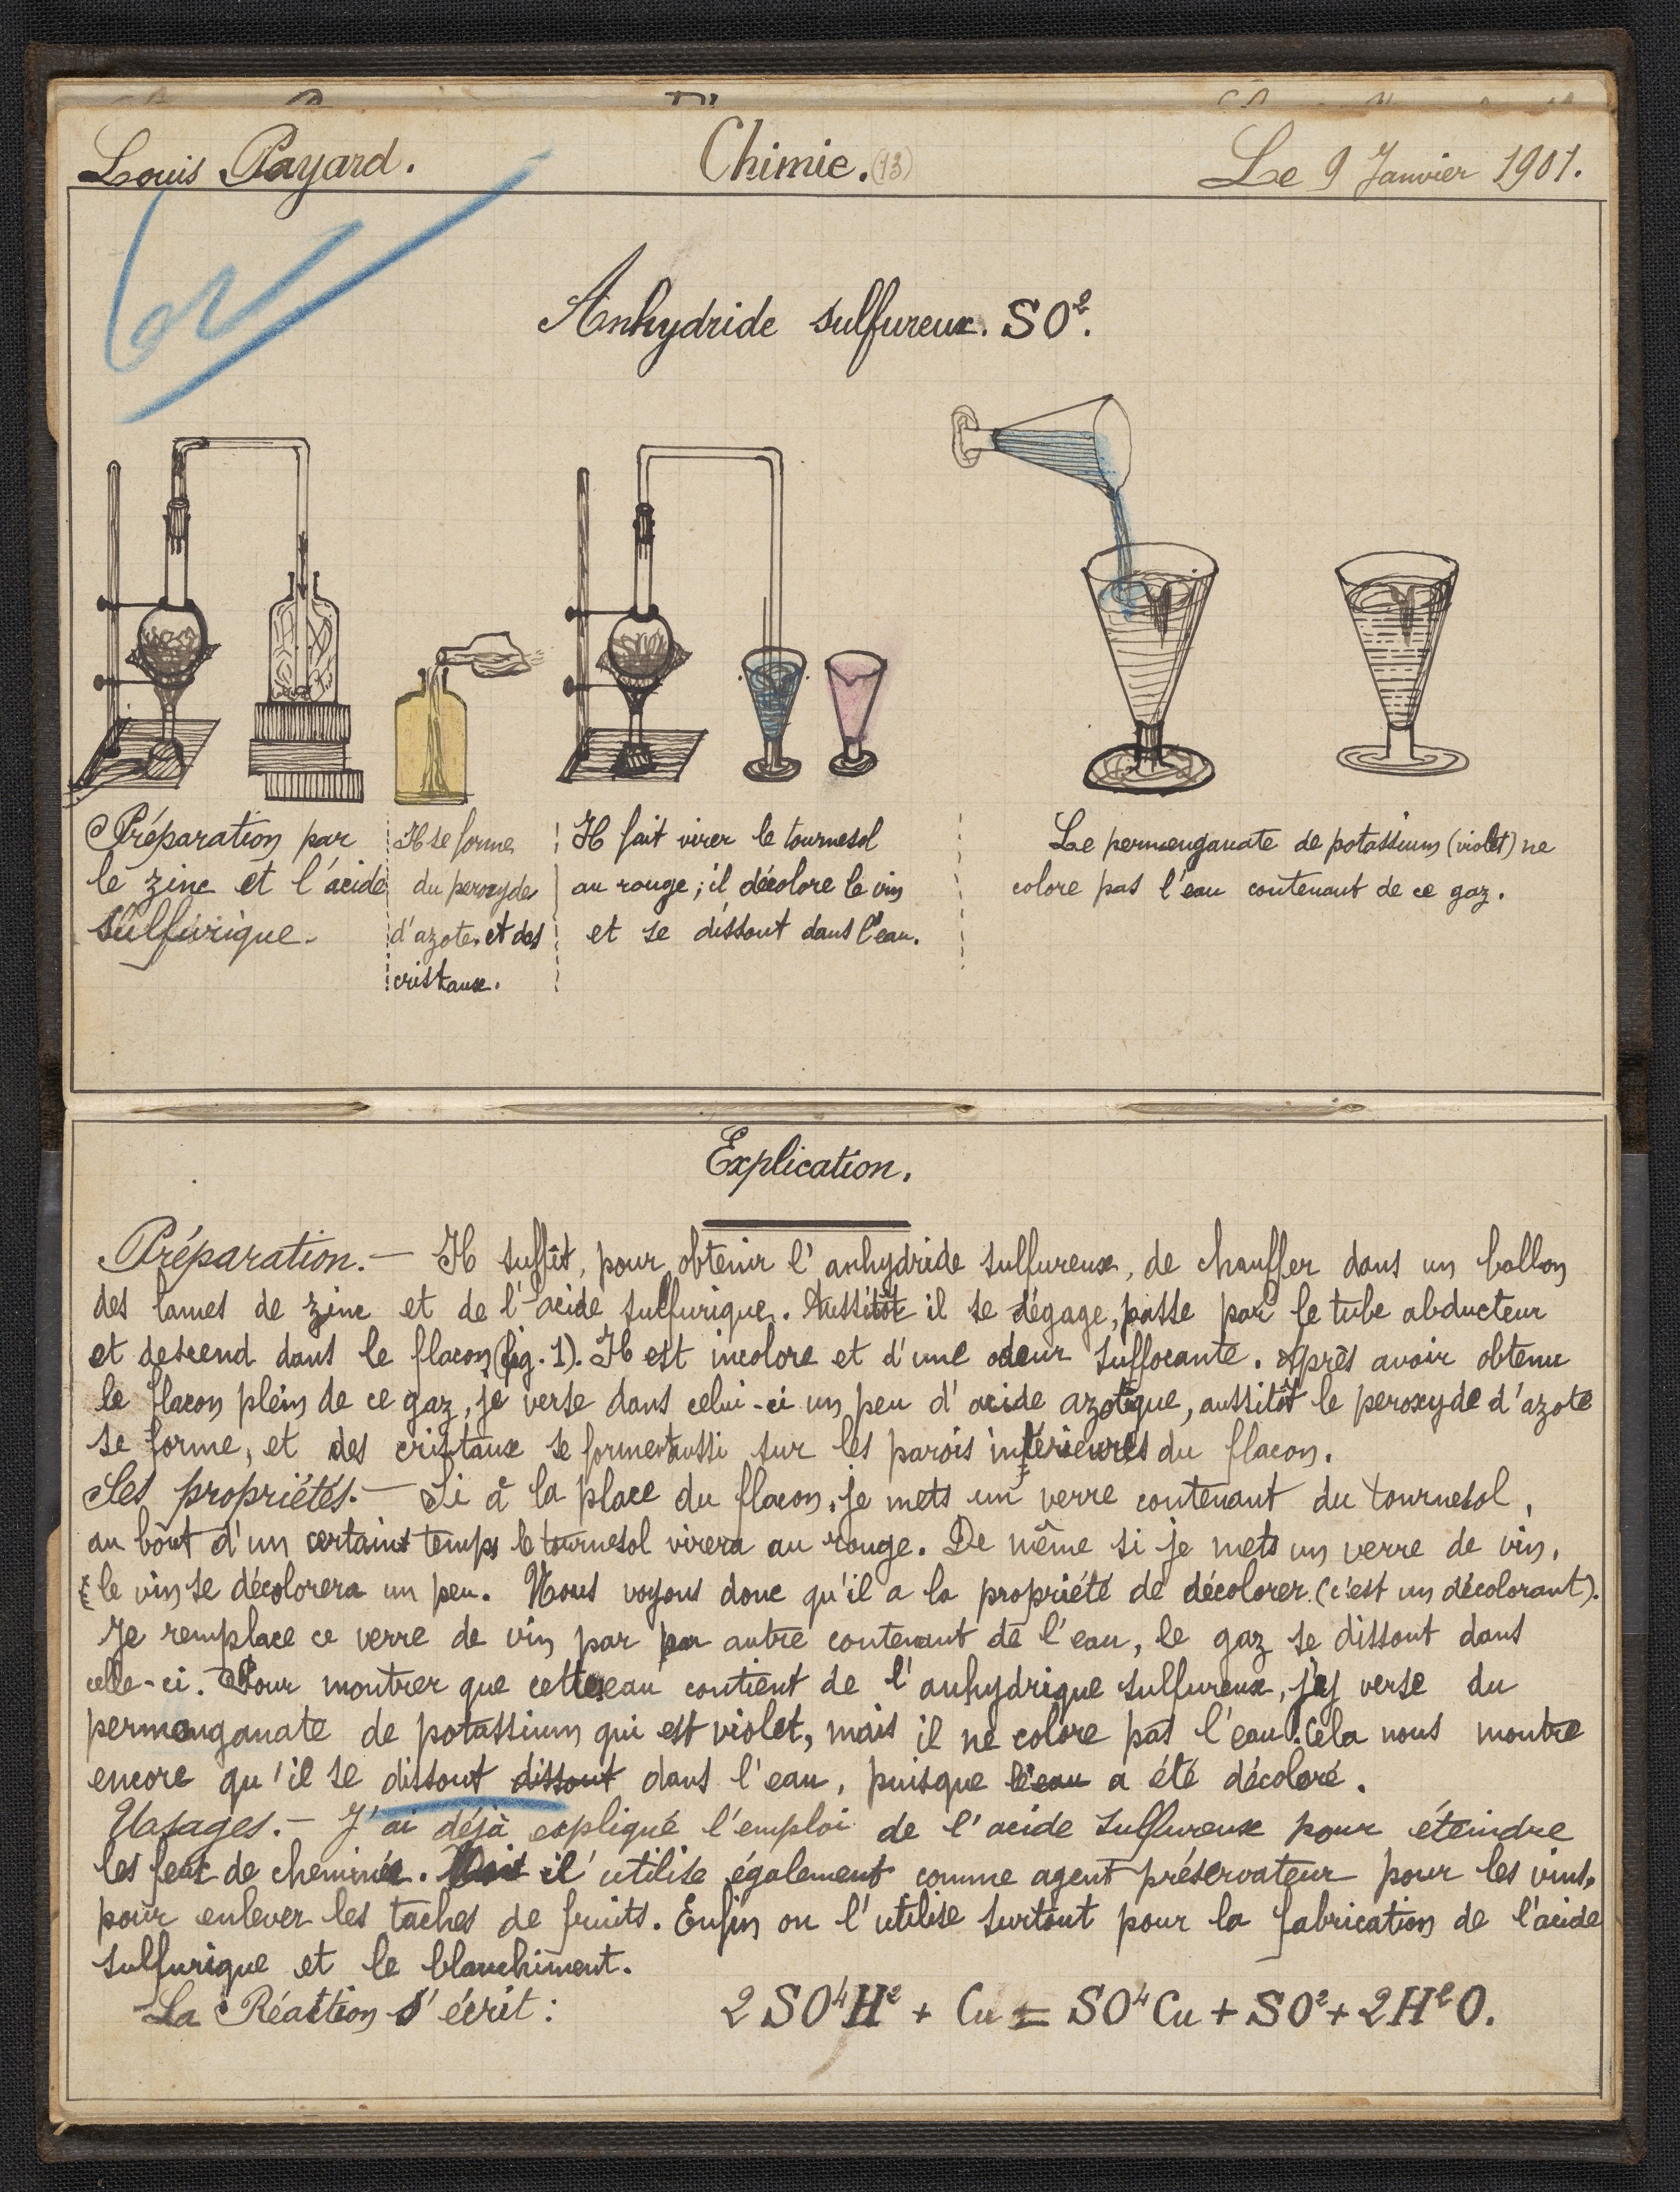 Louis Payard. Chimie. (13) Le 9 Janvier 1901.
Anhydride sulfureux. SO².
Préparation par
le zinc et l'acide
sulfurique.
Il se forme
du peroxyde
d'azote et des
cristaux.
Il fait virer le tournesol
au rouge; il décolore le vin
et se dissout dans l'eau.
Le permenganate de potassium (violet) ne
colore pas l'eau contenant de ce gaz.
Explication.
Préparation. — Il suffit, pour obtenir l'anhydride sulfureux, de chauffer dans un ballon
des lames de zinc et de l'acide sulfurique. Aussitôt il se dégage, passe par le tube abducteur
et descend dans le flacon (fig. 1). Il est incolore et d'une odeur suffocante. Après avoir obtenu
le flacon plein de ce gaz, je verse dans celui-ci un peu d'acide azotique, aussitôt le peroxyde d'azote
se forme, et des cristaux se forment aussi sur les parois intérieures du flacon.
Ses propriétés. — Si à la place du flacon, je mets un verre contenant du tournesol,
au bout d'un certains temps le tournesol virera au rouge. De même si je mets un verre de vin,
le vin se décolorera un peu. Nous voyons donc qu'il a la propriété de décolorer (c'est un décolorant).
Je remplace ce verre de vin par autre contenant de l'eau, le gaz se dissout dans
celle-ci. Pour montrer que cette eau contient de l'anhydrique sulfureux, j'ey verse du
permanganate de potassium qui est violet, mais il ne colore pas l'eau. Cela nous montre
encore qu'il se dissout dissout dans l'eau, puisque l'eau a été décoloré.
Usages. — J'ai déjà expliqué l'emploi de l'acide sulfureux pour éteindre
les feux de cheminée. il utilise également comme agent préservateur pour les vins,
pour enlever les taches de fruits. Enfin on l'utilise surtout pour la fabrication de l'acide
sulfurique et le blanchiment.
La Réaction s'écrit : 2 SO⁴H² + Cu = SO⁴Cu + SO² + 2H²O.